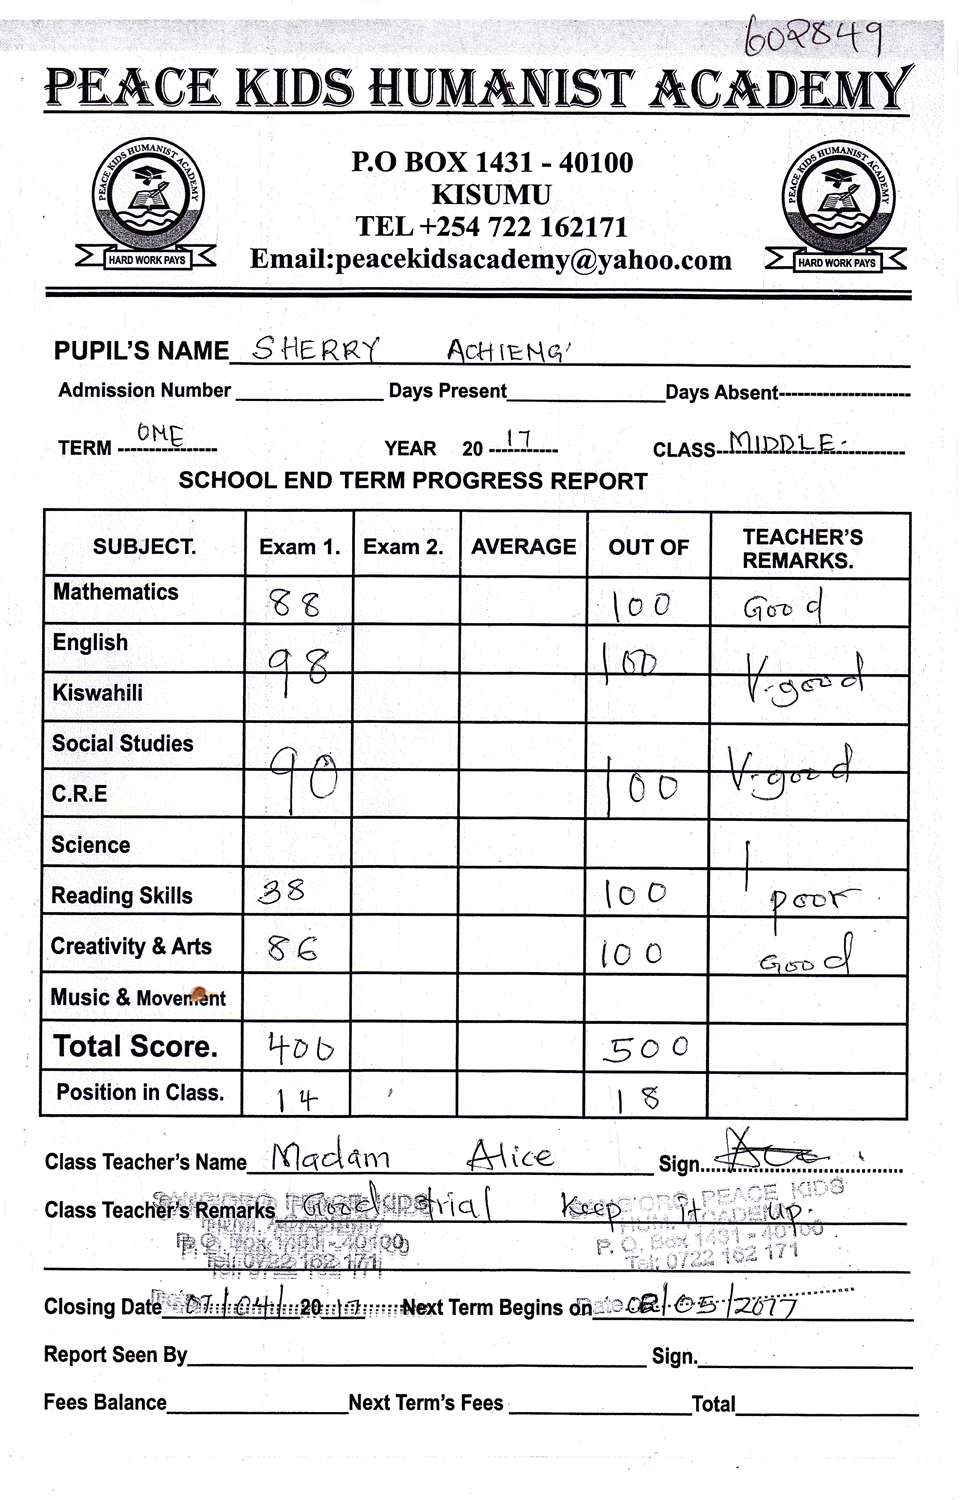 602849
PEACE KIDS HUMANIST ACADEMY
PEACE KIDS HUMANIST ACADEMY
HARD WORK PAYS
P.O BOX 1431 - 40100
KISUMU
TEL +254 722 162171
Email:peacekidsacademy@yahoo.com
PEACE KIDS HUMANIST ACADEMY
HARD WORK PAYS
PUPIL'S NAME SHERRY ACHIENG'
Admission Number Days Present Days Absent
TERM ONE YEAR 2017 CLASS MIDDLE
SCHOOL END TERM PROGRESS REPORT
SUBJECT. Exam 1. Exam 2. AVERAGE OUT OF TEACHER'S REMARKS.
Mathematics 88 100 Good
English 98 100 V-good
Kiswahili
Social Studies 90 100 V-good
C.R.E
Science
Reading Skills 38 100 poor
Creativity & Arts 86 100 Good
Music & Movement
Total Score. 400 500
Position in Class. 14 18
Class Teacher's Name Madam Alice Sign.
Class Teacher's Remarks Good trial Keep it up.
PEACE KIDS
HUM. ACADEMY
P. O. Box 1431 - 40100
Tel: 0722 162 171
PEACE KIDS
HUM. ACADEMY
P. O. Box 1431 - 40100
Tel: 0722 162 171
Closing Date 07/04/2017 Next Term Begins on 02/05/2017
Report Seen By Sign.
Fees Balance Next Term's Fees Total